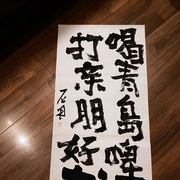 喝青島啤
打亲朋好